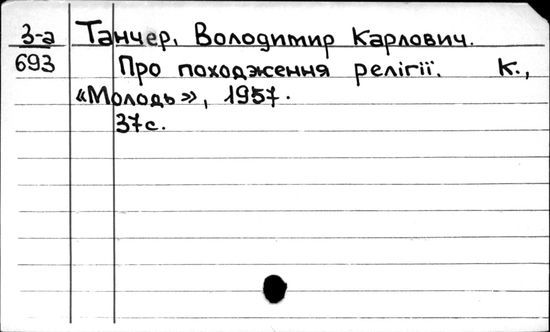 3-а Танчер, Володимир Карлович.
693 Про походження релігії. К.,
«Молодь», 1957.
37с.